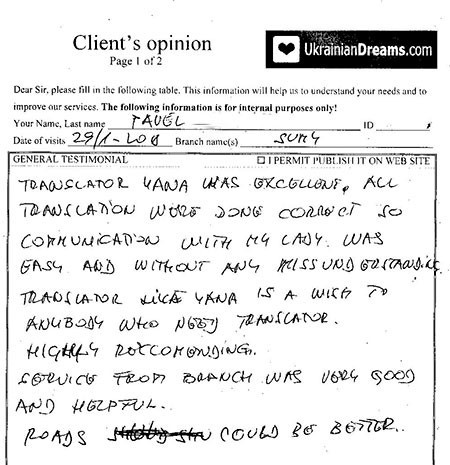 Client's opinion
Page 1 of 2
UkrainianDreams.com
Dear Sir, please fill in the following table. This information will help us to understand your needs and to
improve our services. The following information is for internal purposes only!
Your Name, Last name PAVEL ID
Date of visits 29/1-2011 Branch name(s) SUMY
GENERAL TESTIMONIAL ☐ I PERMIT PUBLISH IT ON WEB SITE
TRANSLATOR YANA WAS EXCELLENT, ALL
TRANSLATION WERE DONE CORRECT SO
COMMUNICATION WITH MY LADY WAS
EASY AND WITHOUT ANY MISSUNDERSTANDING
TRANSLATOR LIKE YANA IS A WISH TO
ANYBODY WHO NEED TRANSLATOR.
HIGHLY RECCOMENDING.
SERVICE FROM BRANCH WAS VERY GOOD
AND HELPFUL.
ROADS COULD BE BETTER.